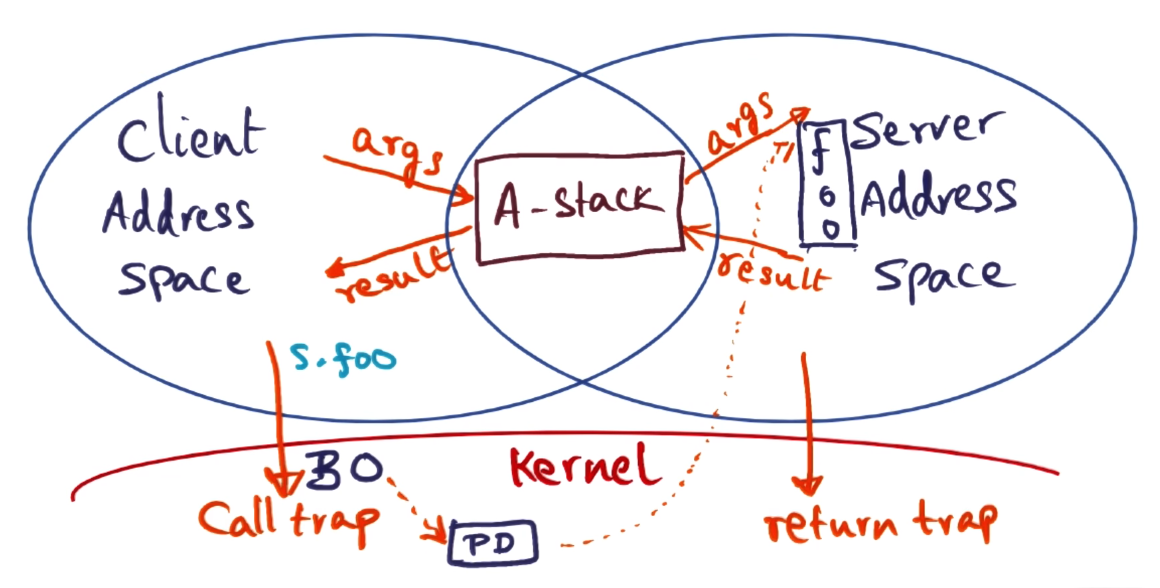 Client
Address
Space
args
result
A-stack
args
result
foo
Server
Address
Space
s.foo
BO
Kernel
Call trap
PD
return trap